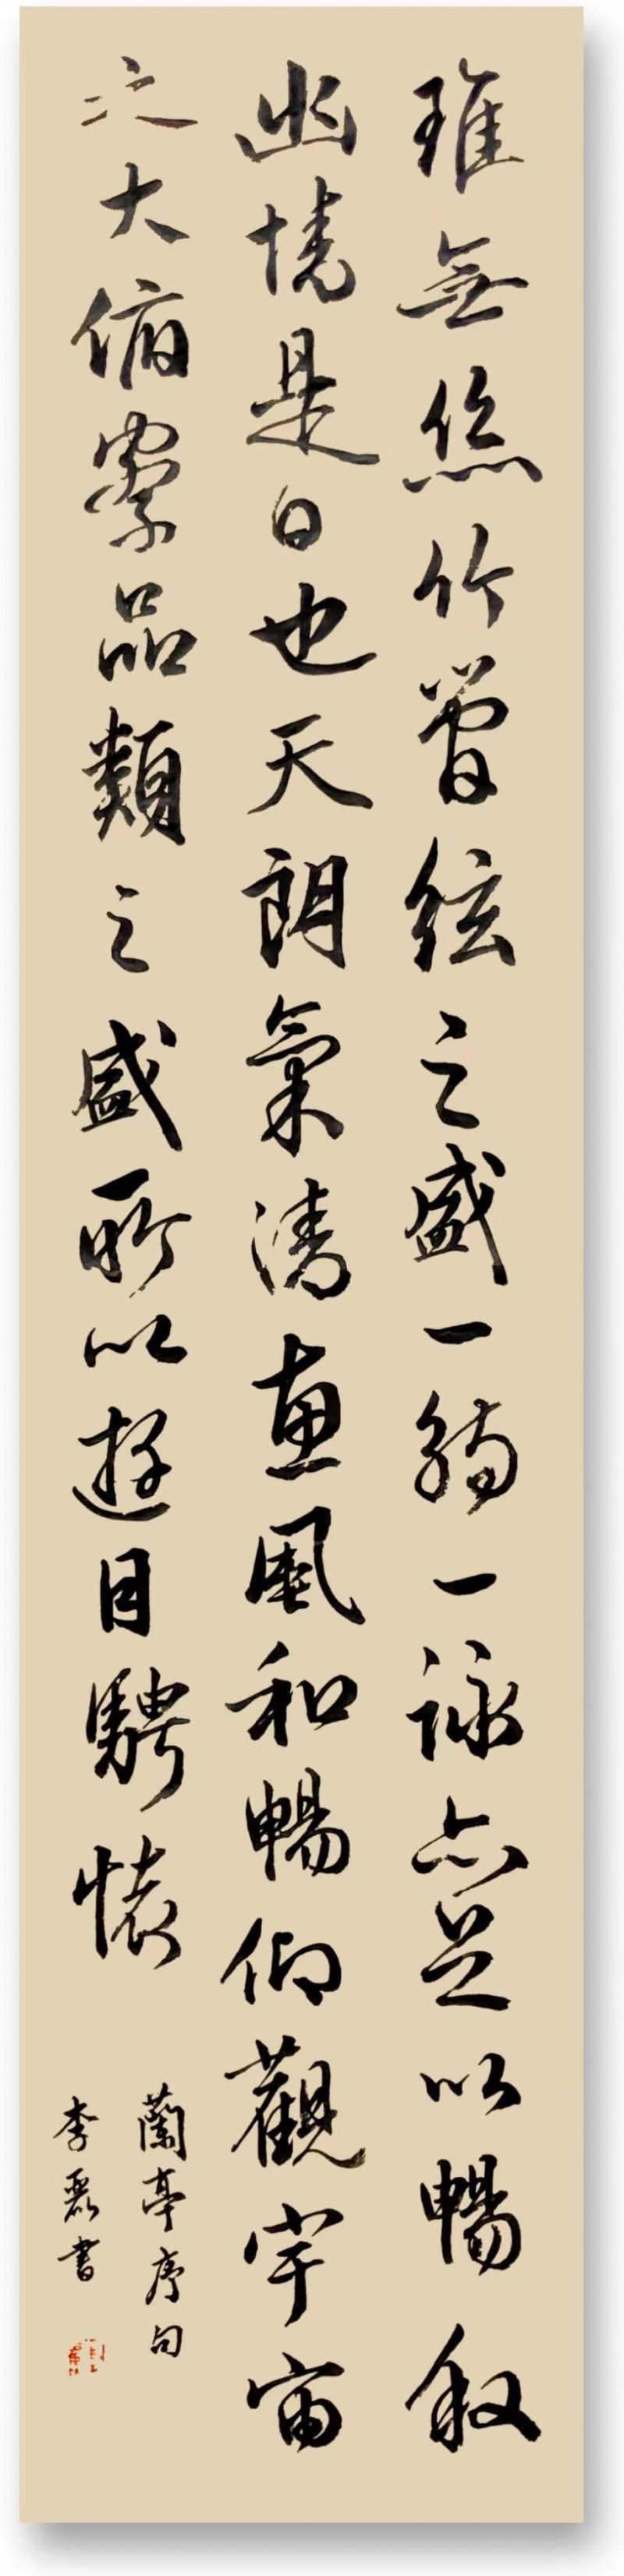 雖無絲竹管絃之盛一觴一詠亦足以暢叙
幽情是日也天朗氣清惠風和暢仰觀宇宙
之大俯察品類之盛所以遊目騁懷
蘭亭序句
李磊書